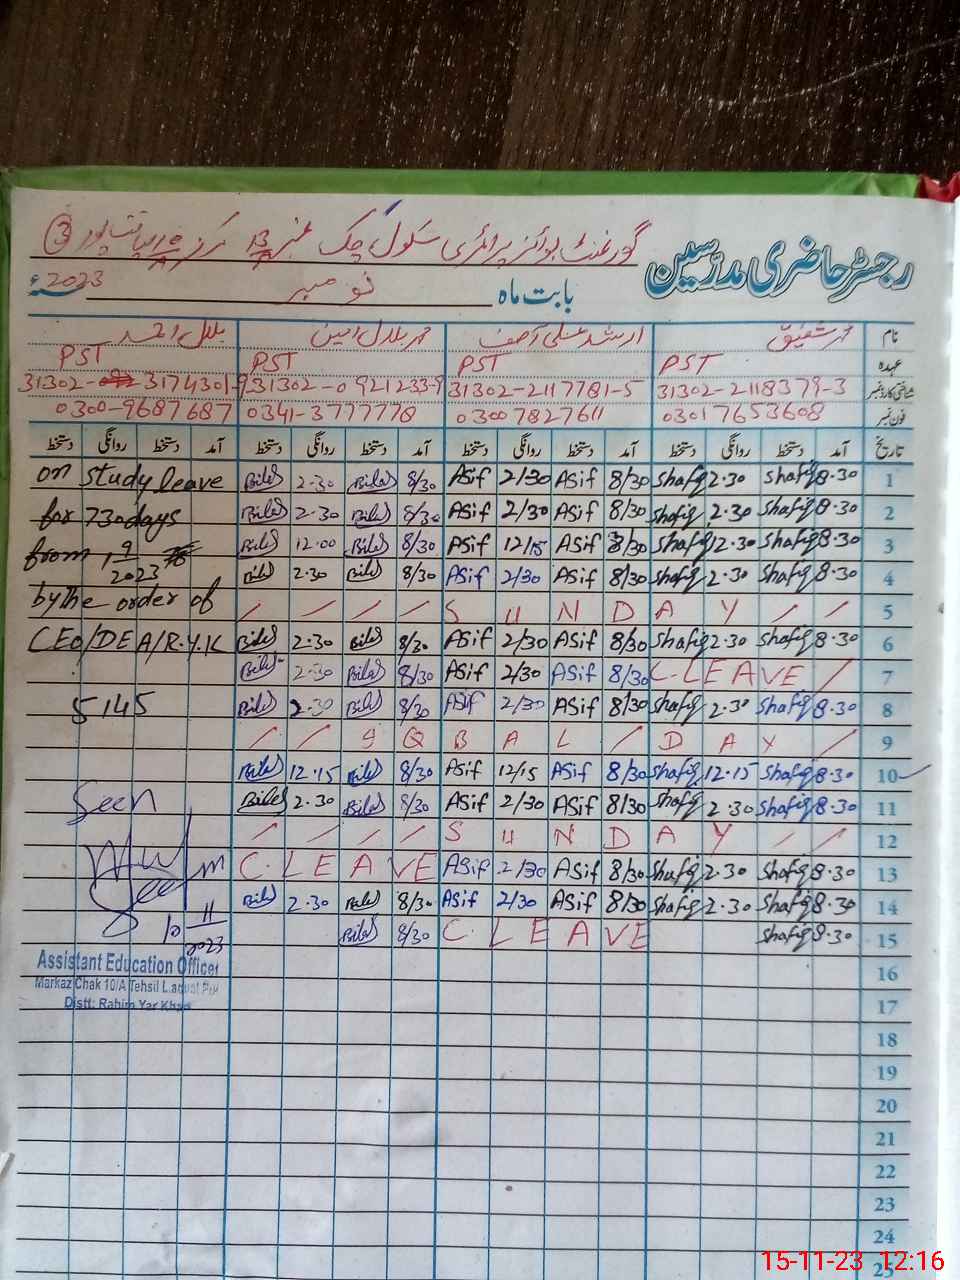 رجسٹر حاضری مدرسین
گورنمنٹ بوائز پرائمری سکول چک نمبر 13/A مرکز 10/A لیاقت پور ③
بابت ماہ نومبر 2023ء
نام محمد شفیق ارشد علی آصف محمد بلال امین بلال احمد
عہدہ PST PST PST PST
شناختی کارڈ نمبر 31302-2118379-3 31302-2117781-5 31302-0921233-9 31302-3174301-9
فون نمبر 03017653608 03007827611 0341-3777778 0300-9687687
تاریخ آمد دستخط روانگی دستخط آمد دستخط روانگی دستخط آمد دستخط روانگی دستخط آمد دستخط روانگی دستخط
on study leave Bilal 2.30 Bilal 8/30 Asif 2/30 Asif 8/30 Shafiq 2.30 Shafiq 8.30 1
for 730 days Bilal 2.30 Bilal 8/30 Asif 2/30 Asif 8/30 Shafiq 2.30 Shafiq 8.30 2
from 1 9/2023 Bilal 12.00 Bilal 8/30 Asif 12/15 Asif 8/30 Shafiq 2.30 Shafiq 8.30 3
Bilal 2.30 Bilal 8/30 Asif 2/30 Asif 8/30 Shafiq 2.30 Shafiq 8.30 4
by the order of / / / / S U N D A Y / / 5
CEO/DEA/R.Y.K Bilal 2.30 Bilal 8/30 Asif 2/30 Asif 8/30 Shafiq 2.30 Shafiq 8.30 6
Bilal 2.30 Bilal 8/30 Asif 2/30 Asif 8/30 C.LEAVE / 7
5145 Bilal 2.30 Bilal 8/30 Asif 2/30 Asif 8/30 Shafiq 2.30 Shafiq 8.30 8
/ / 9 Q B A L / D A Y / 9
Bilal 12.15 Bilal 8/30 Asif 12/15 Asif 8/30 Shafiq 12.15 Shafiq 8.30 10
Seen Bilal 2.30 Bilal 8/30 Asif 2/30 Asif 8/30 Shafiq 2.30 Shafiq 8.30 11
/ / / / S U N D A Y / / 12
C. L E A V E Asif 2/30 Asif 8/30 Shafiq 2.30 Shafiq 8.30 13
Bilal 2.30 Bilal 8/30 Asif 2/30 Asif 8/30 Shafiq 2.30 Shafiq 8.30 14
10 11/2023 Bilal 8/30 C. L E A V E Shafiq 8.30 15
Assistant Education Officer 16
Markaz Chak 10/A Tehsil Liaquat Pur
Distt: Rahim Yar Khan 17
18
19
20
21
22
23
24
25
15-11-23 12:16